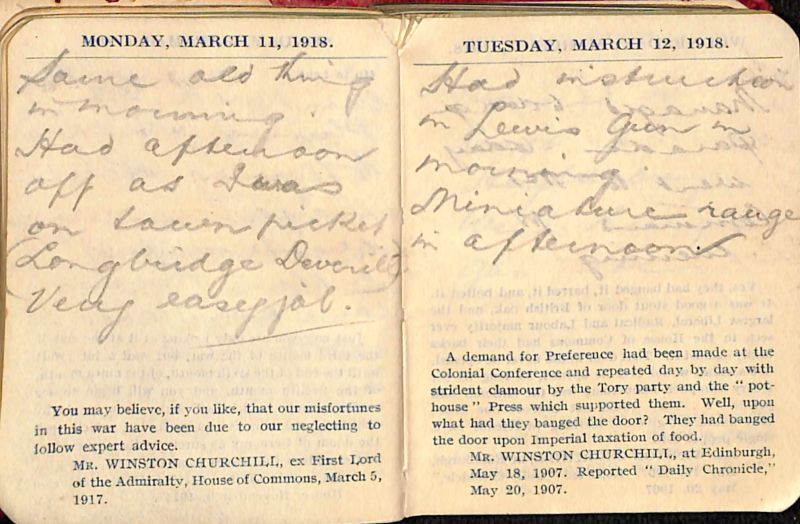 MONDAY, MARCH 11, 1918.
Same old thing
in morning.
Had afternoon
off as I was
on town picket
(Longbridge Deverill).
Very easy job.
You may believe, if you like, that our misfortunes
in this war have been due to our neglecting to
follow expert advice.
MR. WINSTON CHURCHILL, ex First Lord
of the Admiralty, House of Commons, March 5,
1917.
TUESDAY, MARCH 12, 1918.
Had instruction
in Lewis Gun in
morning.
Miniature range
in afternoon.
A demand for Preference had been made at the
Colonial Conference and repeated day by day with
strident clamour by the Tory party and the " pot-
house " Press which supported them. Well, upon
what had they banged the door? They had banged
the door upon Imperial taxation of food.
MR. WINSTON CHURCHILL, at Edinburgh,
May 18, 1907. Reported " Daily Chronicle,"
May 20, 1907.